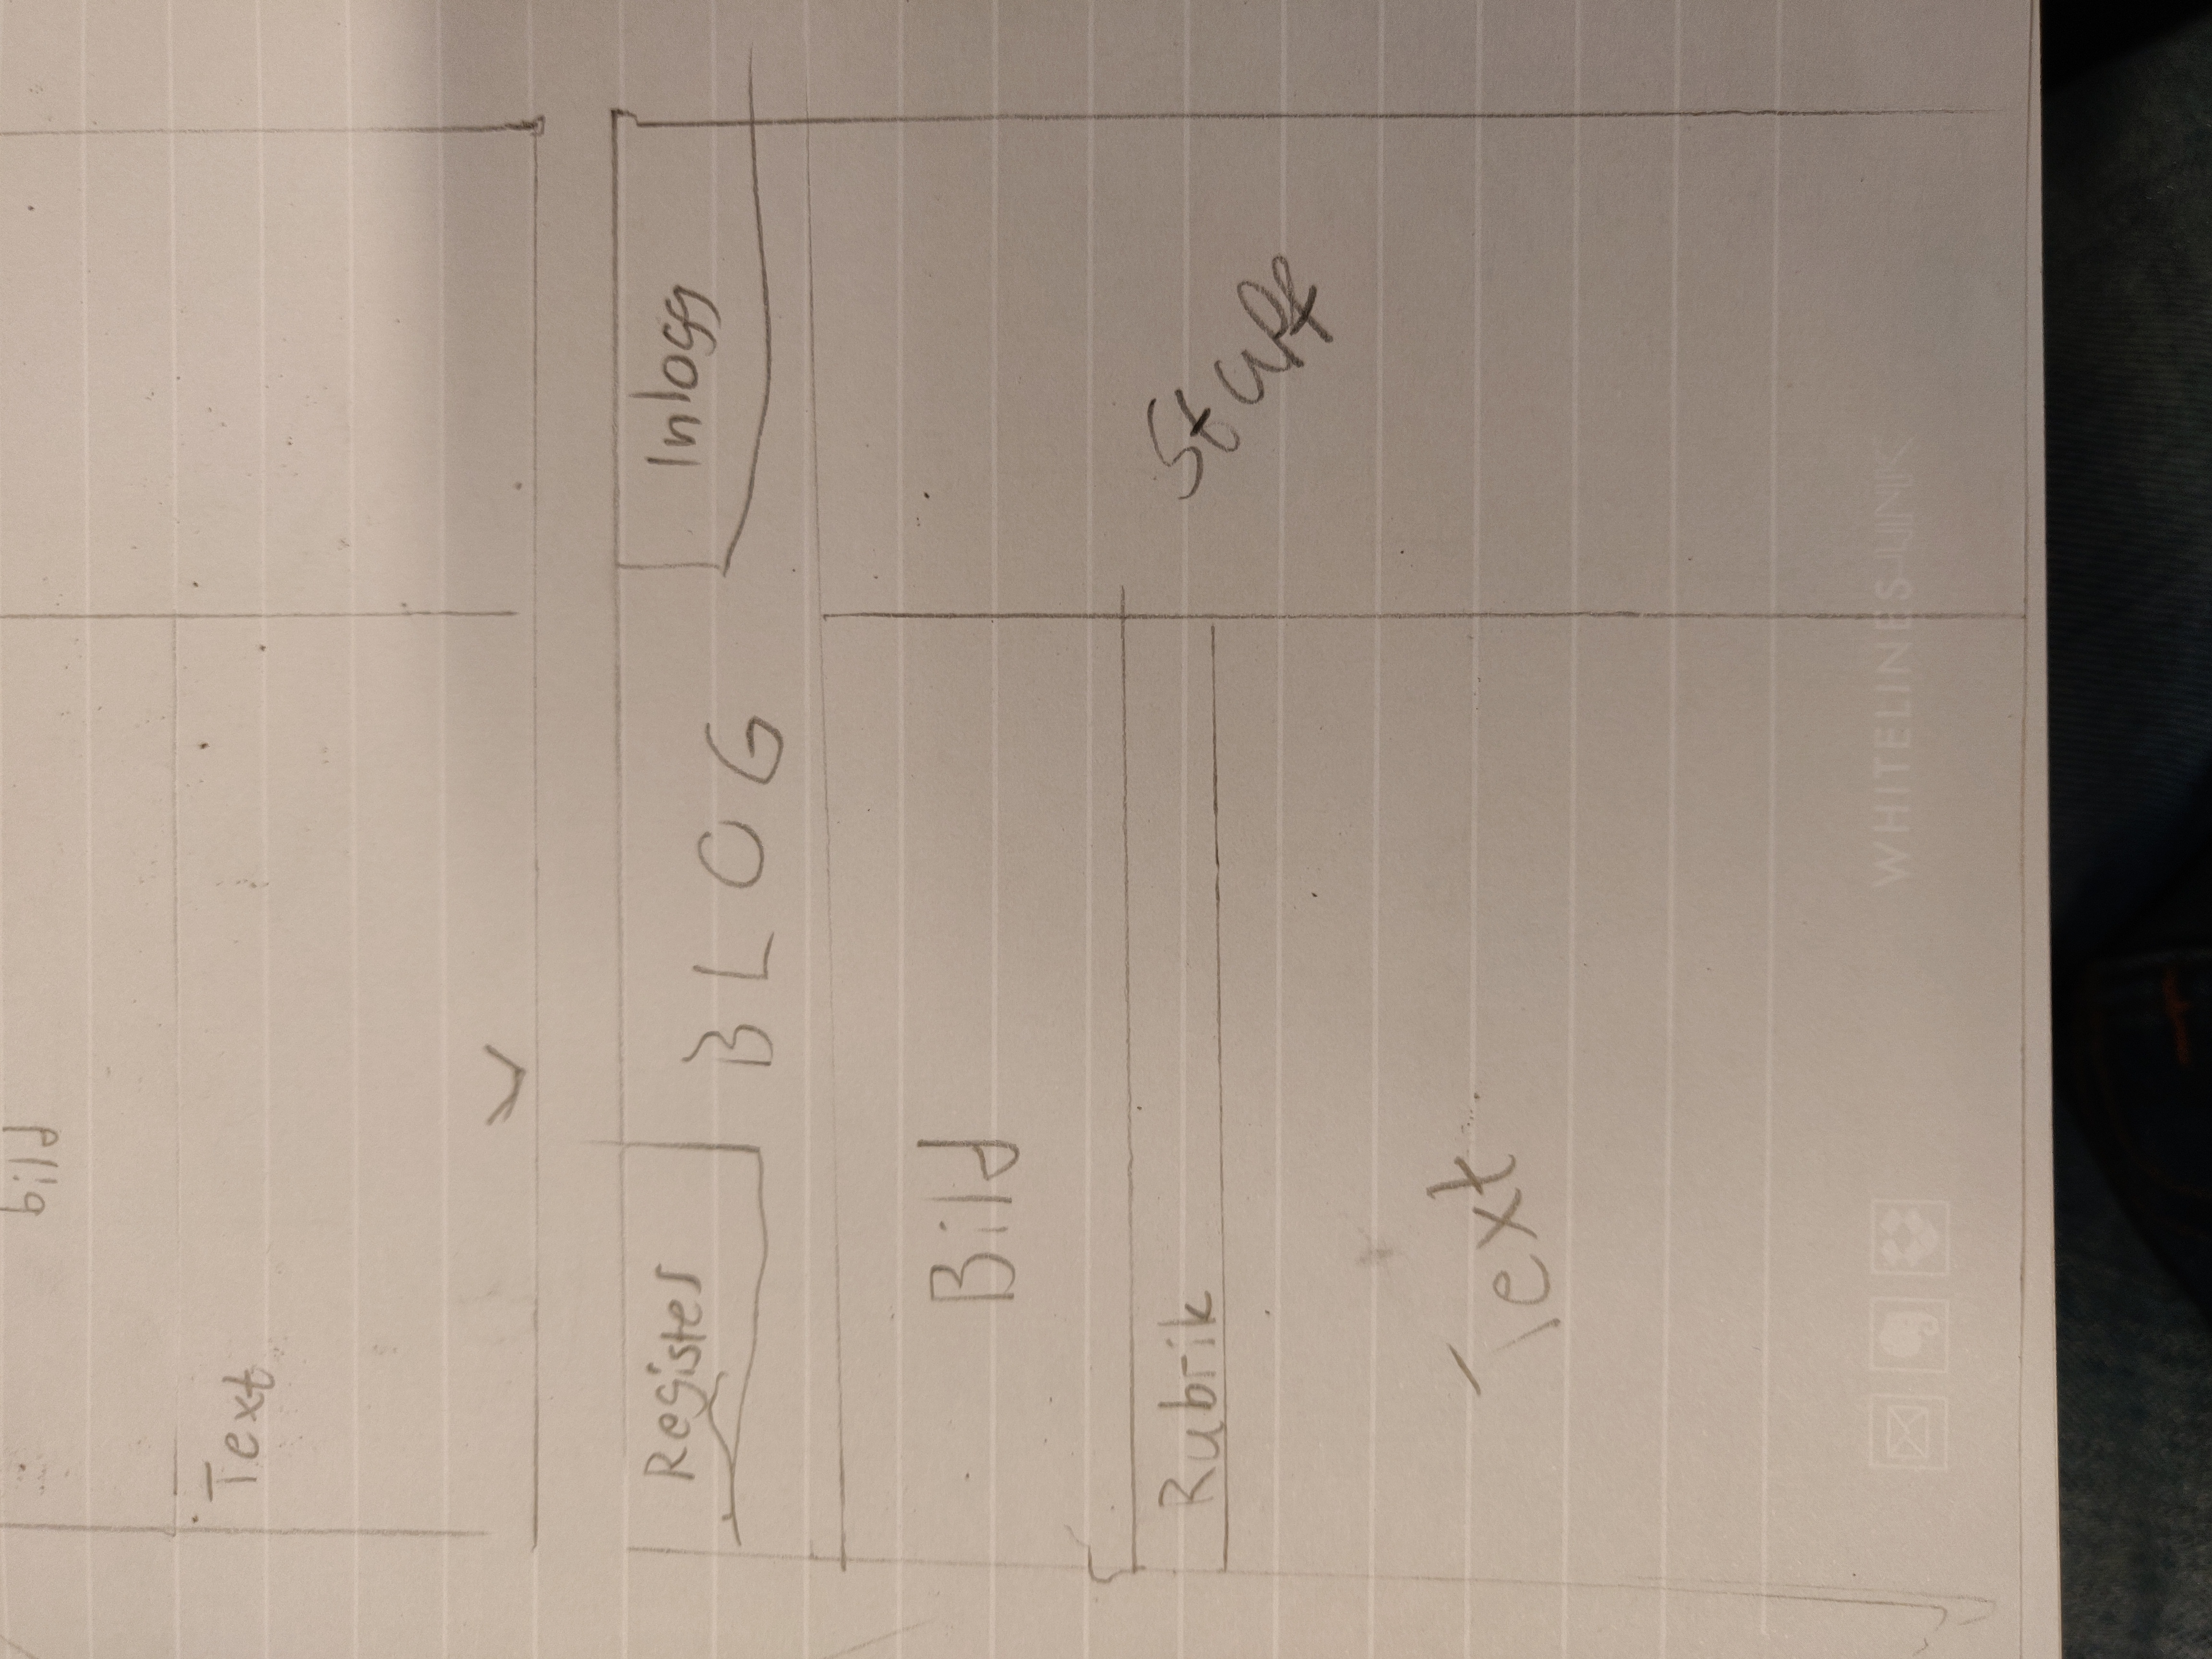 bild
Text
Register
BLOG
Inlogg
Bild
Rubrik
Stuff
Text
WHITELINES LINK